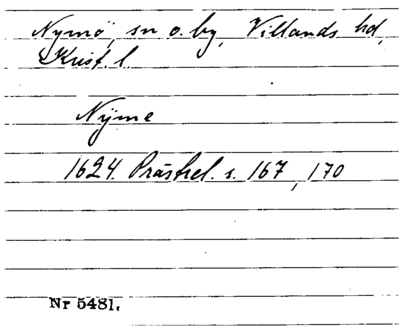 Nymö, sn o. by, Villands hd,
Krist. l.
Nÿme
1624. Prästrel. s. 167, 170
Nr 5481.